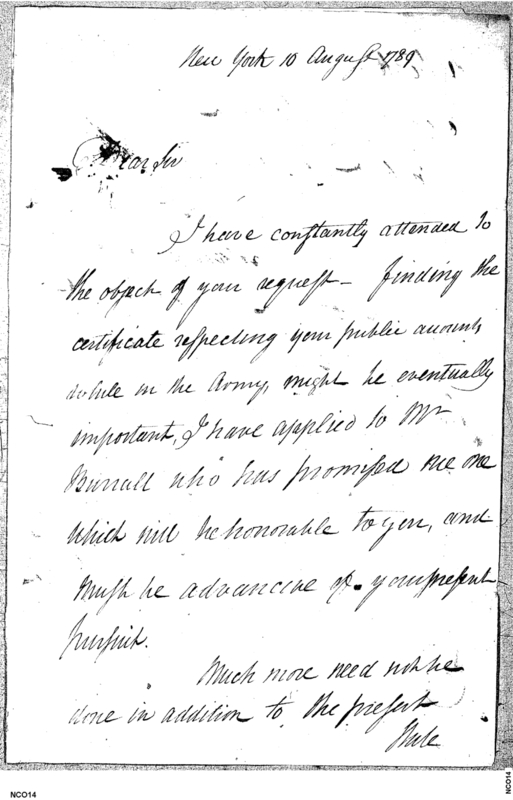 New York 10 August 1789
Dear Sir
I have constantly attended to
the object of your request – finding the
certificate respecting your public accounts,
while in the Army, might be eventually
important, I have applied to Mr
Burrall who has promised me one
which will be honorable to you, and
must be advancive of your present
pursuit.
Much more need not be
done in addition to the present
State
NCO14
NCO14